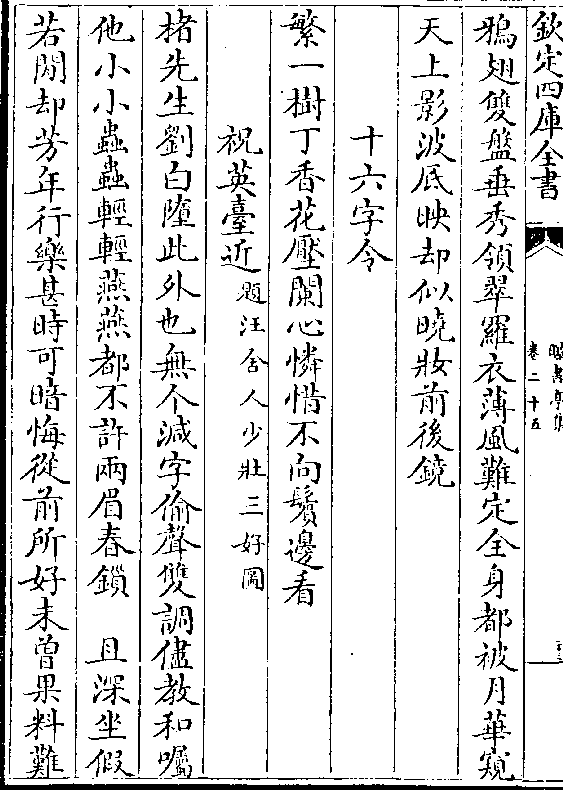 欽定四庫全書
曝書亭集
卷二十五
鴉翅雙盤垂秀領翠羅衣薄風難定全身都被月華窺
天上影波底映却似曉妝前後鏡
十六字令
繁一樹丁香花壓闌心憐惜不向鬢邊看
祝英臺近題汪舍人少壯三好圖
楮先生劉白墮此外也無个減字偷聲雙調儘教和囑
他小小蟲蟲輕輕燕燕都不許兩眉春鎖　且深坐假
若閒却芳年行樂甚時可暗悔從前所好未曾果料難